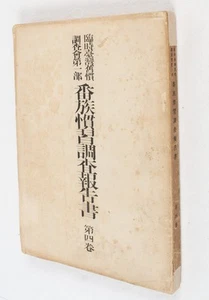 臨時臺灣舊慣
調查會第一部
番族慣習調查報告書
第四卷